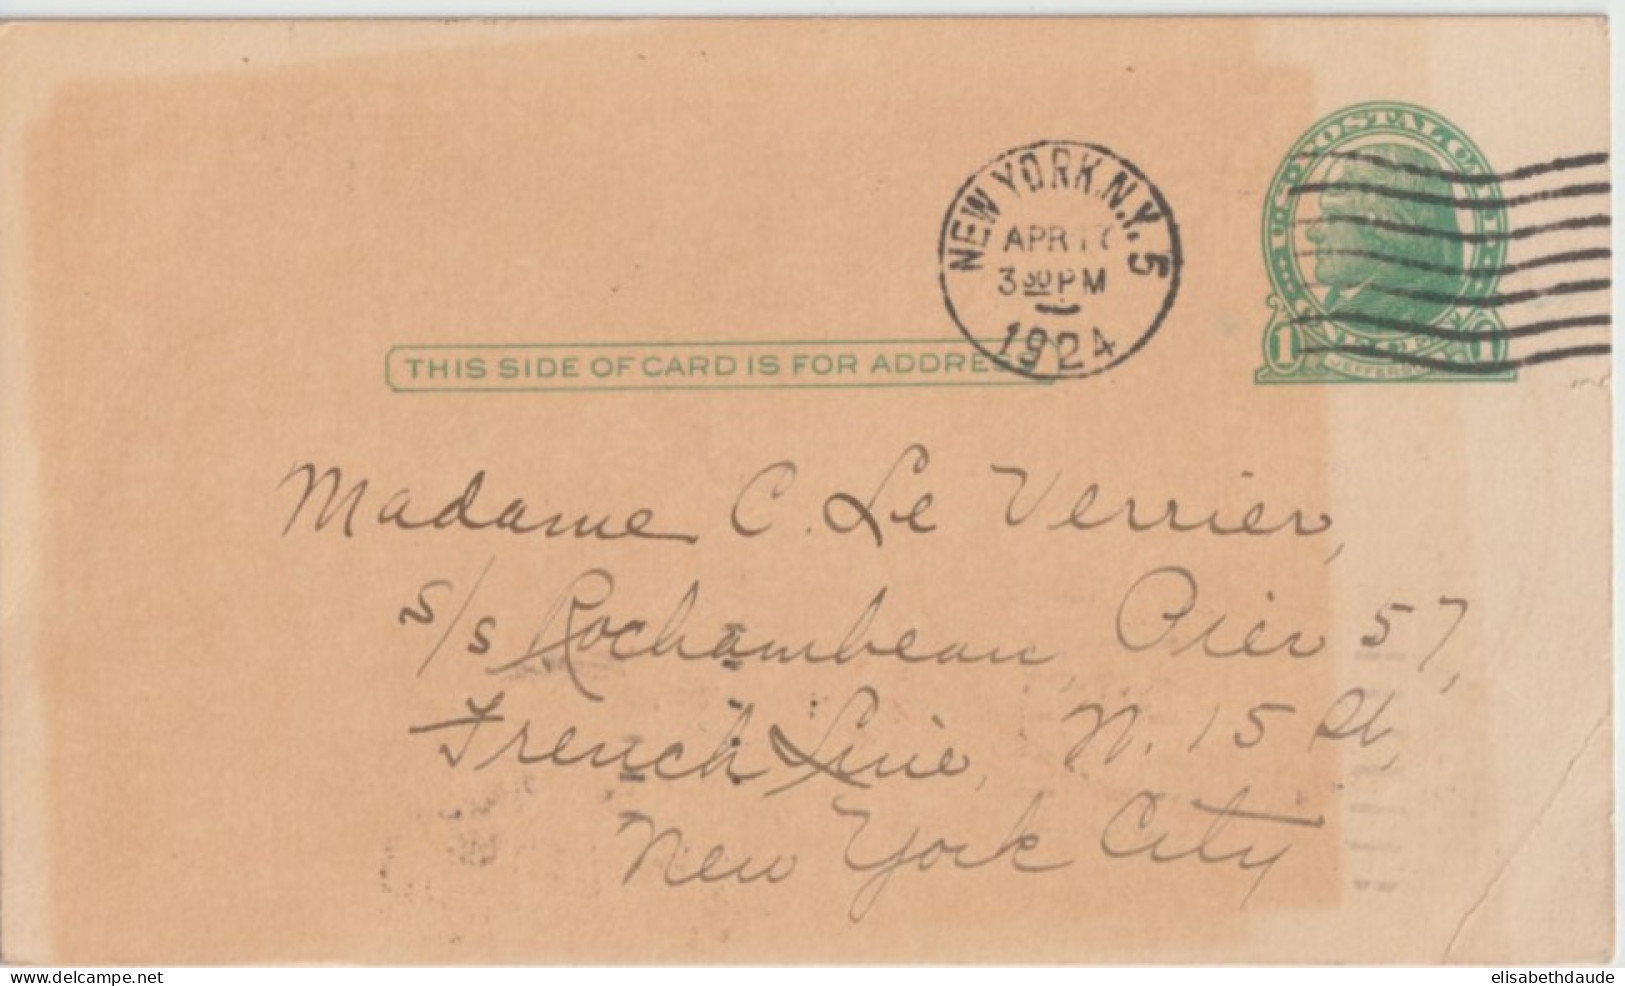 U.S. POSTAL CARD
NEW YORK, N.Y. 5
APR 17
3 30 PM
1924
1 1
JEFFERSON
THIS SIDE OF CARD IS FOR ADDRESS
Madame C. Le Verrier,
s/s Rochambeau, Pier 57,
French Line, N. 15 St,
New York City
www.delcampe.net
elisabethdaude